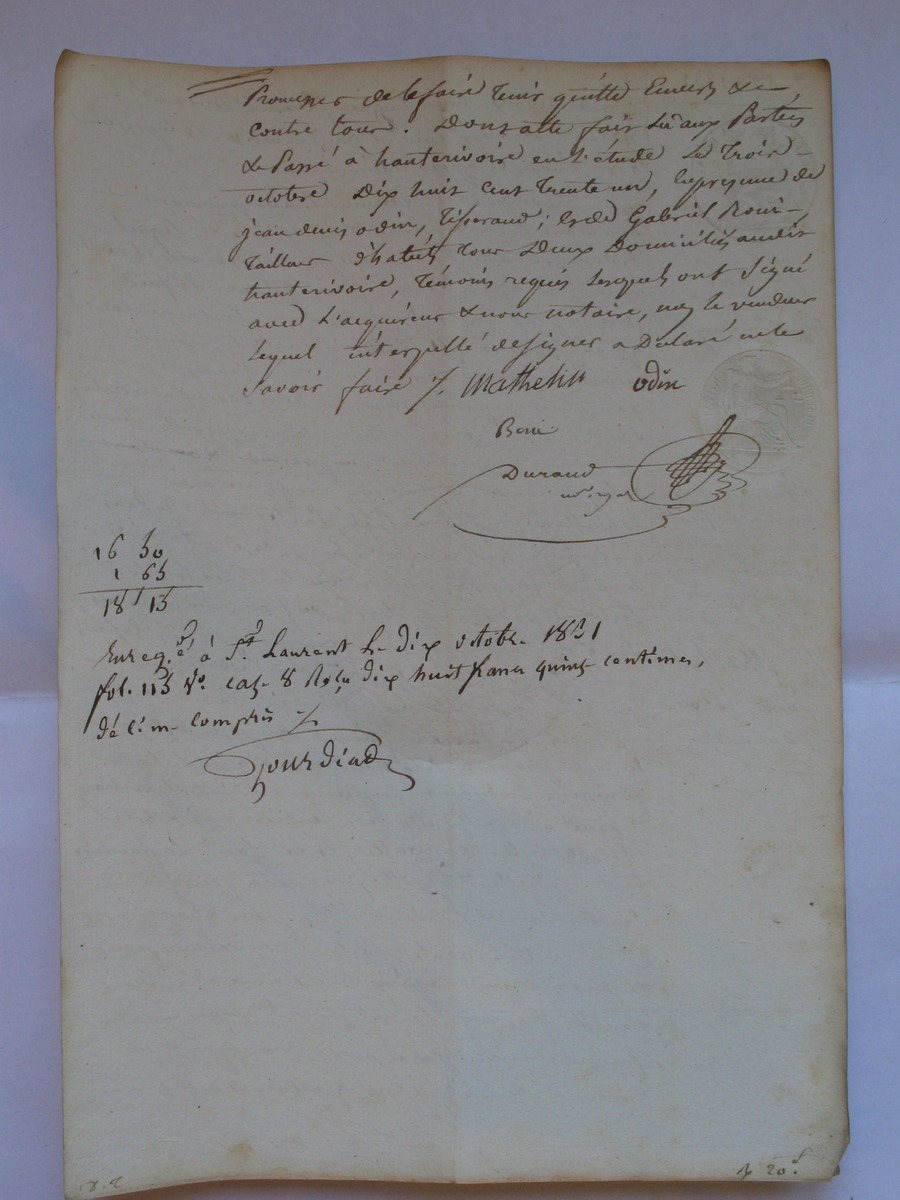 Promesses de le faire tenir quitte Envers & 
contre tous. Dont acte fait Lu aux Parties
& Passé à hauterivoire en l'étude Le Trois
octobre Dix huit Cent Trente un, En présence de
jean denis odin, Tisserand; et de Gabriel Roni
Tailleur d'habits tous Deux Domiciliés audit
hauterivoire, Témoins requis Lesquels ont Signé
avec L'acquéreur & nous notaire, non le vendeur
Lequel interpellé de signer a Déclaré ne le
savoir faire /. Mathelin odin
Roni
Durand
16 50
1 65
18 15
Enreg.é à St. Laurent Le dix octobre 1831
fol. 113 Vo. case 8 Reçu dix huit francs quinze centimes,
décime compris
Gourdiad
20.s